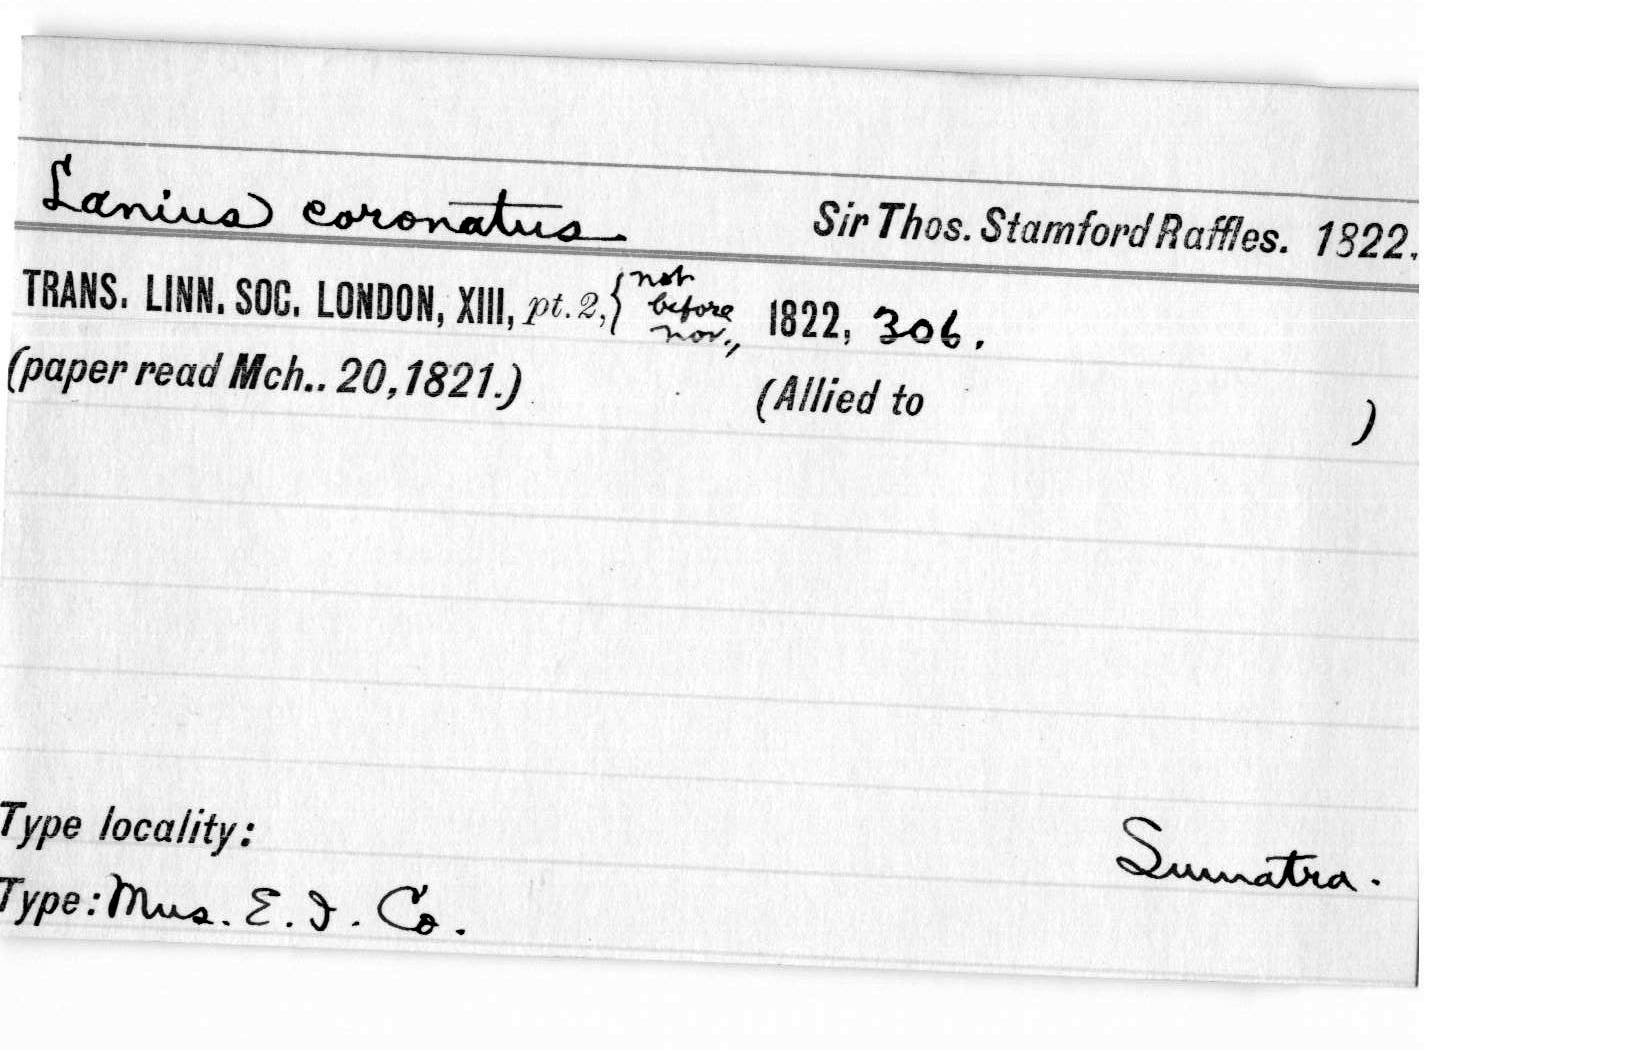 Lanius coronatus Sir Thos. Stamford Raffles. 1822.
TRANS. LINN. SOC. LONDON, XIII, pt. 2, { not before nov., 1822, 306.
(paper read Mch.. 20, 1821.) (Allied to )
Type locality: Sumatra.
Type: Mus. E. I. Co.